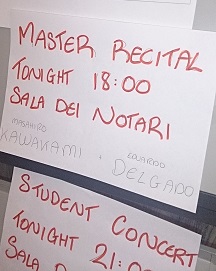 MASTER RECITAL
TONIGHT 18:00
SALA DEI NOTARI
MASAHIRO KAWAKAMI + EDUARDO DELGADO
STUDENT CONCERT
TONIGHT 21:
SALA